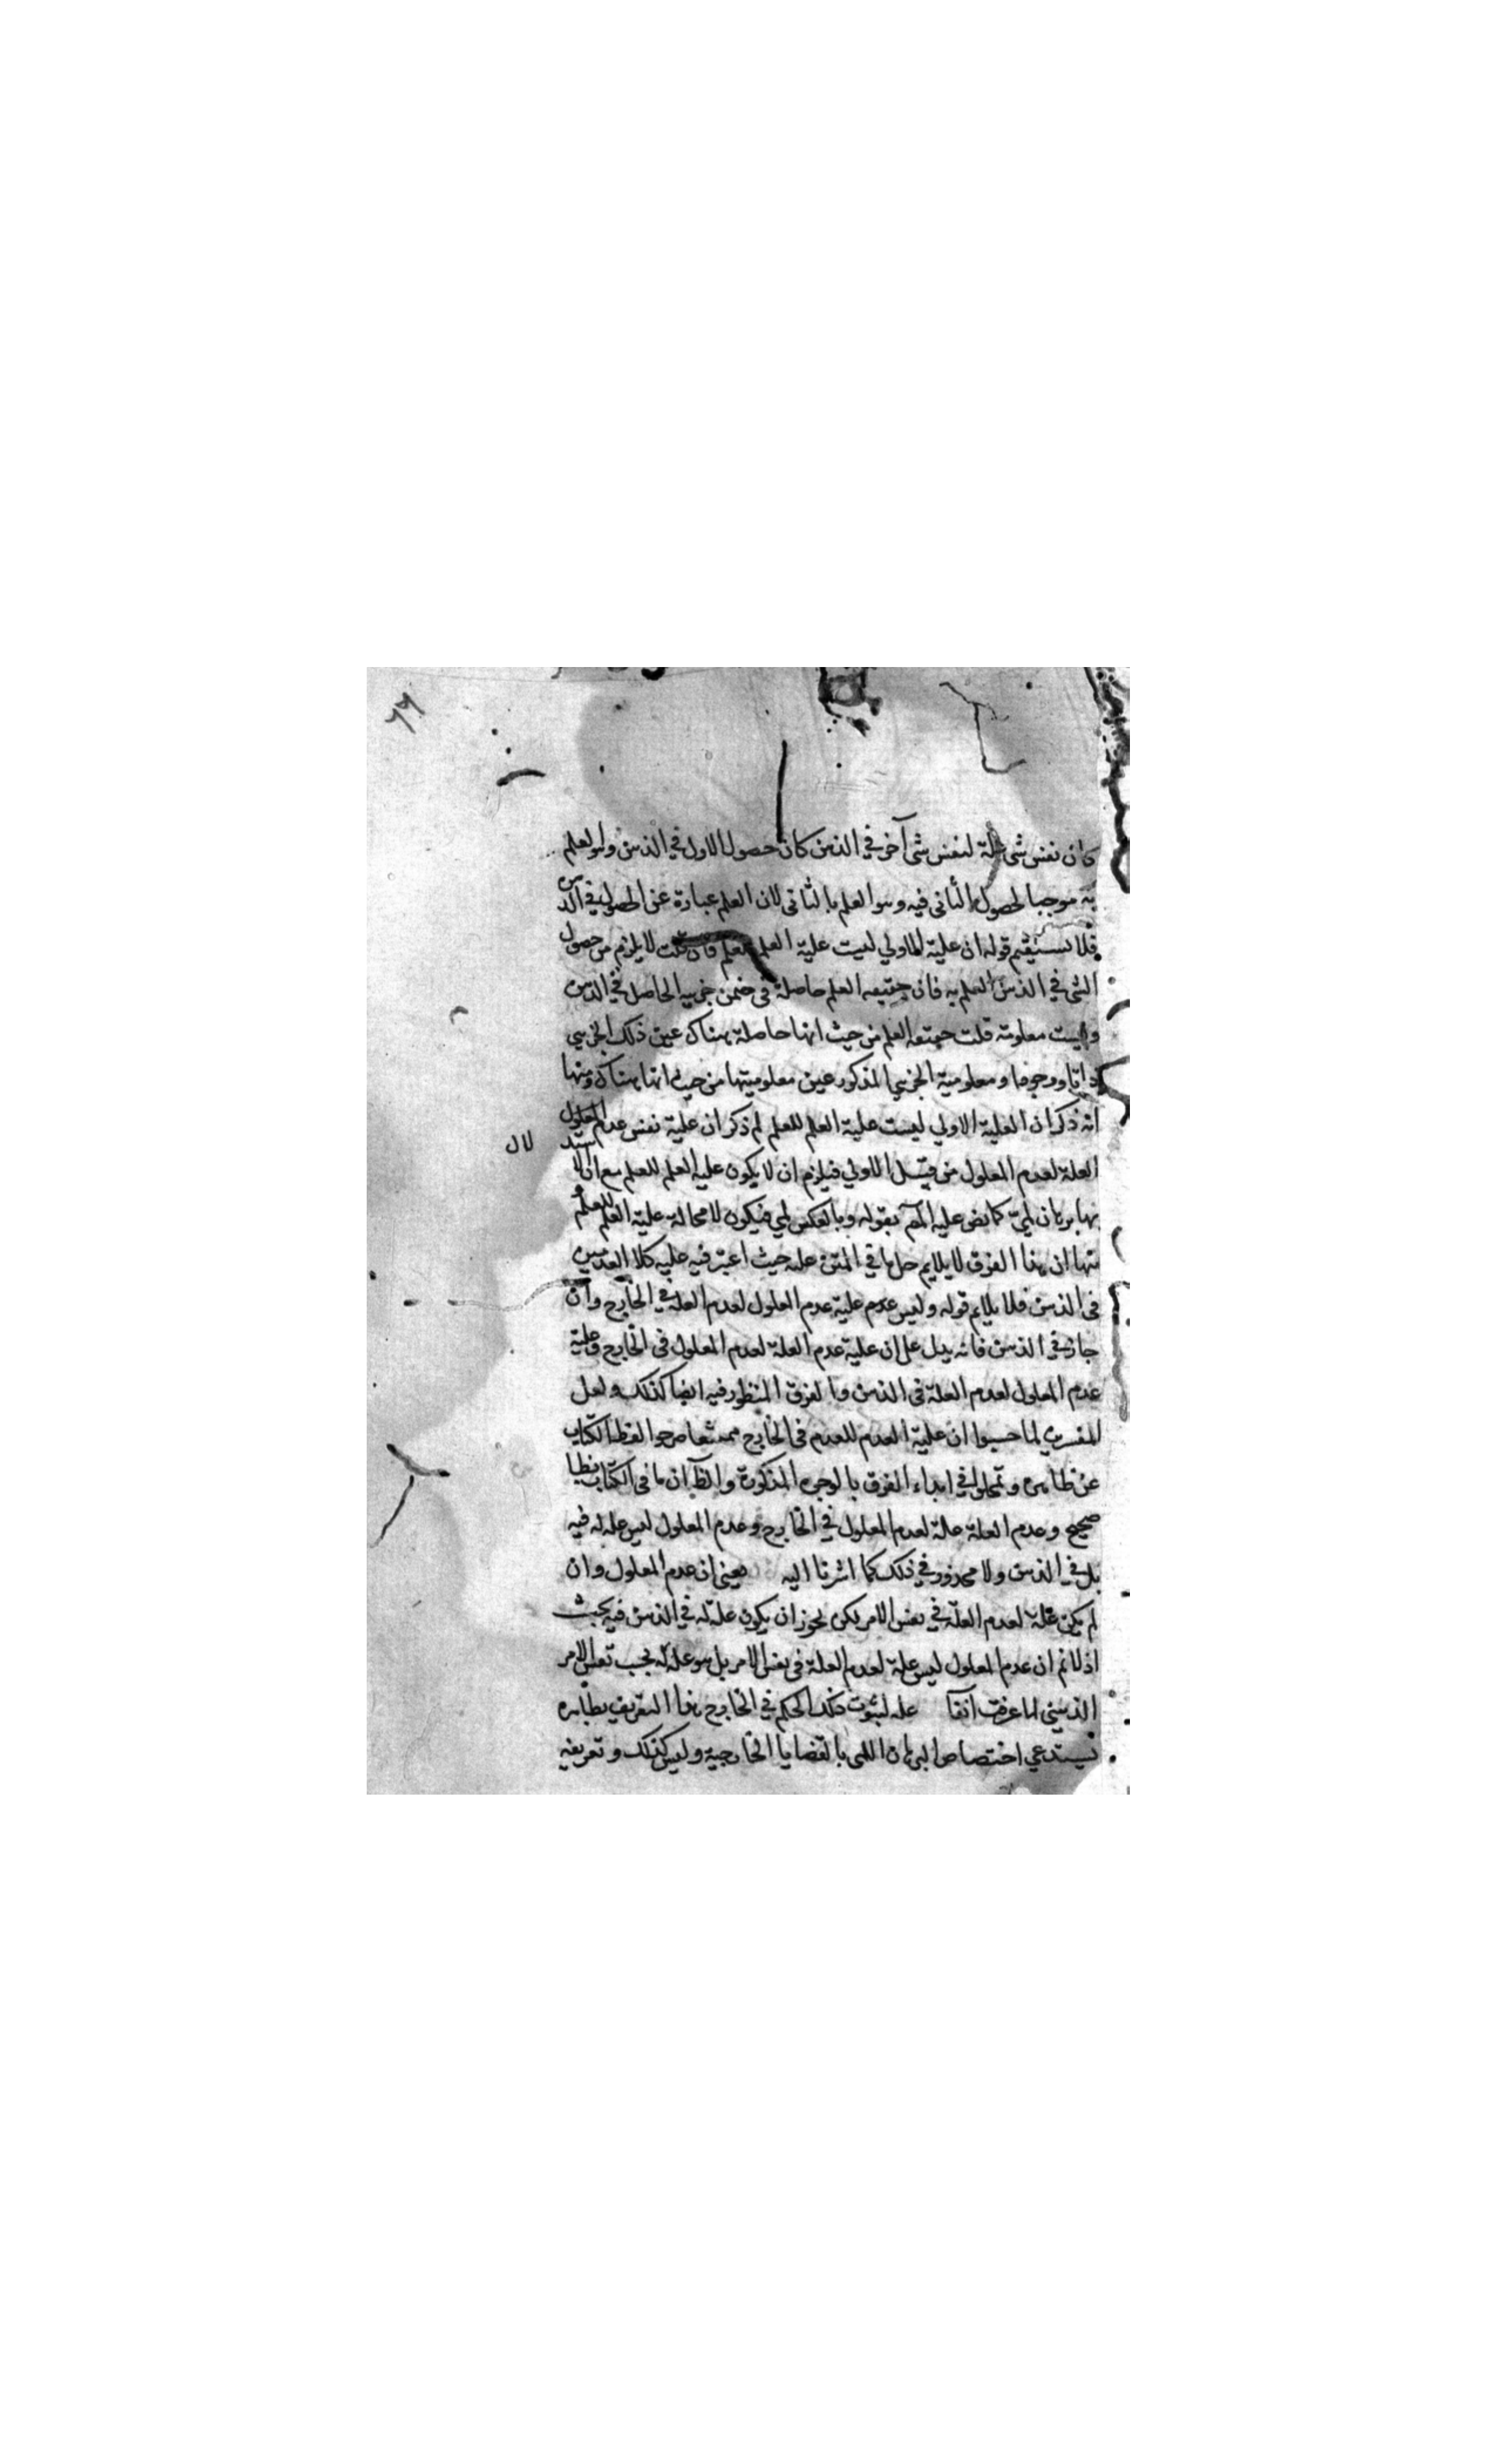 ٦٦
كان نفس شئ علة لنفس شئ آخر في الذهن كان حصول الاول في الذهن وهو العلم
به موجبا لحصول الثانى فيه وهو العلم بالثانى لان العلم عبارة عن الحصول في الذهن
فلا يستقيم قوله ان علية الاولي ليست علية العلم للعلم فان قلت لا يلزم من حصول
الشئ في الذهن العلم به فان حقيقة العلم حاصلة في ضمن جزئيه الحاصل في الذهن
وليست معلومة قلت حقيقة العلم من حيث انها حاصلة هناك عين ذلك الجزئي
ذاتا ووجودا ومعلومية الجزئي المذكور عين معلوميتها من حيث انها هناك ومنها
انه ذكر ان العلية الاولي ليست علية العلم للعلم ثم ذكر ان علية نفس عدم المعلول
العلة لعدم المعلول من قبيل الاولي فيلزم ان لا يكون علية العلم للعلم مع ان الاستد
لال
بها برهان لمي كما نص عليه المص بقوله وبالعكس لمي فيكون لا محالة علية العلم للعلم و
منها ان هذا الفرق لا يلايم حل ما في المتن عليه حيث اعتبر فيه علية كلا العدمين
في الذهن فلا يلايم قوله وليس عدم علية عدم المعلول لعدم العلة في الخارج وان
جاز في الذهن فانه يدل على ان علية عدم العلة لعدم المعلول في الخارج وعلية
عدم المعلول لعدم العلة في الذهن والفرق المنظور فيه ايضا كذلك ولعل
المفسرين لما حسبوا ان علية العدم للعدم في الخارج ممتنعا صرحوا لفظ الكتاب
عن ظاهره وتمحلوا في ابداء الفرق بالوجوه المذكورة والظ ان ما في الكتاب بظا
صحيح وعدم العلة علة لعدم المعلول في الخارج وعدم المعلول ليس علة له فيه
بل في الذهن ولا محذور في ذلك كما اشرنا اليه يعنى ان عدم المعلول وان
لم يكن علة لعدم العلة في نفس الامر لكن يجوز ان يكون علة له في الذهن فيه بحث
اذ لا نم ان عدم المعلول ليس علة لعدم العلة في نفس الامر بل هو علة له بحسب نفس الامر
الذهني لما عرفت آنفا علة لثبوت ذلك الحكم في الخارج هذا التعريف بظاهره
يستدعي اختصاص البرهان اللمي بالقضايا الخارجية وليس كذلك وتعريفه